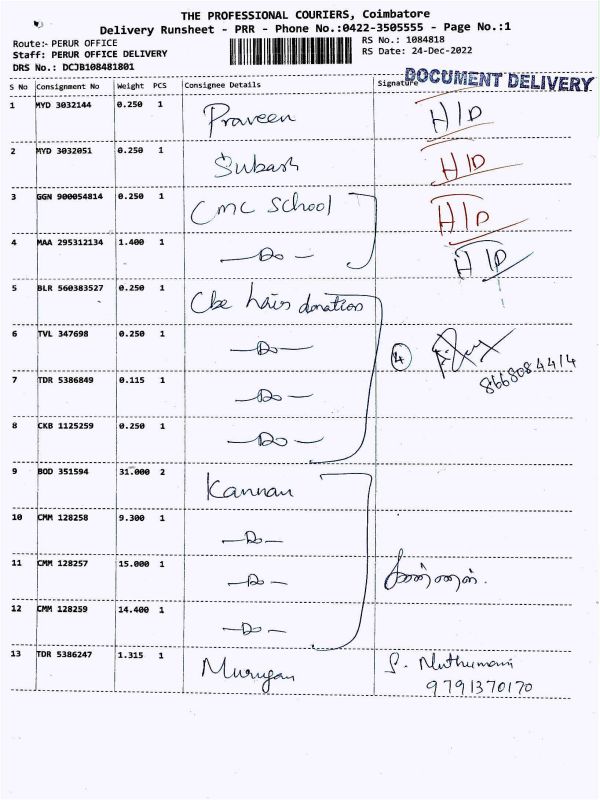 THE PROFESSIONAL COURIERS, Coimbatore
Delivery Runsheet - PRR - Phone No.:0422-3505555 - Page No.:1
Route:- PERUR OFFICE
RS No.: 1084818
Staff: PERUR OFFICE DELIVERY
RS Date: 24-Dec-2022
DRS No.: DCJB108481801
DOCUMENT DELIVERY
S No Consignment No Weight PCS Consignee Details Signature
1 MYD 3032144 0.250 1 Praveen H/D
2 MYD 3032051 0.250 1 Subash H/D
3 GGN 900054814 0.250 1 CMC School H/D
4 MAA 295312134 1.400 1 —Do— H/D
5 BLR 560383527 0.250 1 Cbe hair donation
6 TVL 347698 0.250 1 —Do— 4
8668084414
7 TDR 5386849 0.115 1 —Do—
8 CKB 1125259 0.250 1 —Do—
9 BOD 351594 31.000 2 Kannan
10 CMM 128258 9.300 1 —Do—
11 CMM 128257 15.000 1 —Do— கண்ணன்.
12 CMM 128259 14.400 1 —Do—
13 TDR 5386247 1.315 1 Murugan S. Muthumani
9791370170